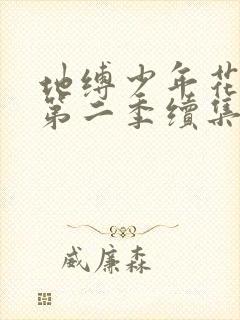 地缚少年花
第二季续集
威廉森